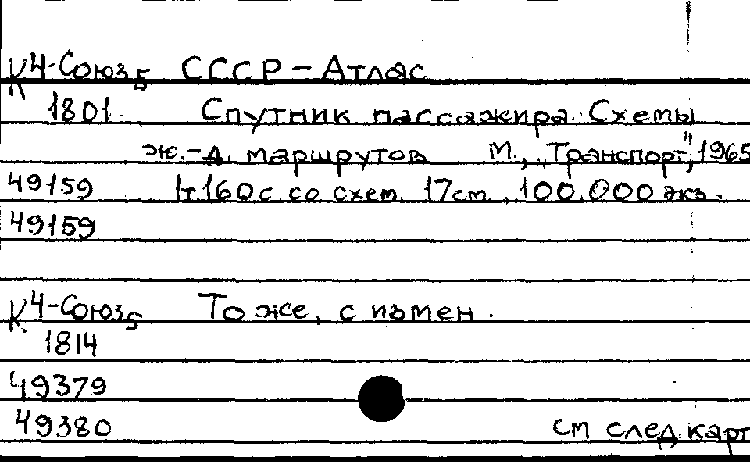 К4-Союз5 СССР-Атлас
1801 Спутник пассажира. Схемы
ж.-д. маршрутов М., "Транспорт", 1965
49159 160с со схем. 17см., 100.000 экз.
49159
К4-Союз5 То же, с измен.
1814
49379
49380 см след карт